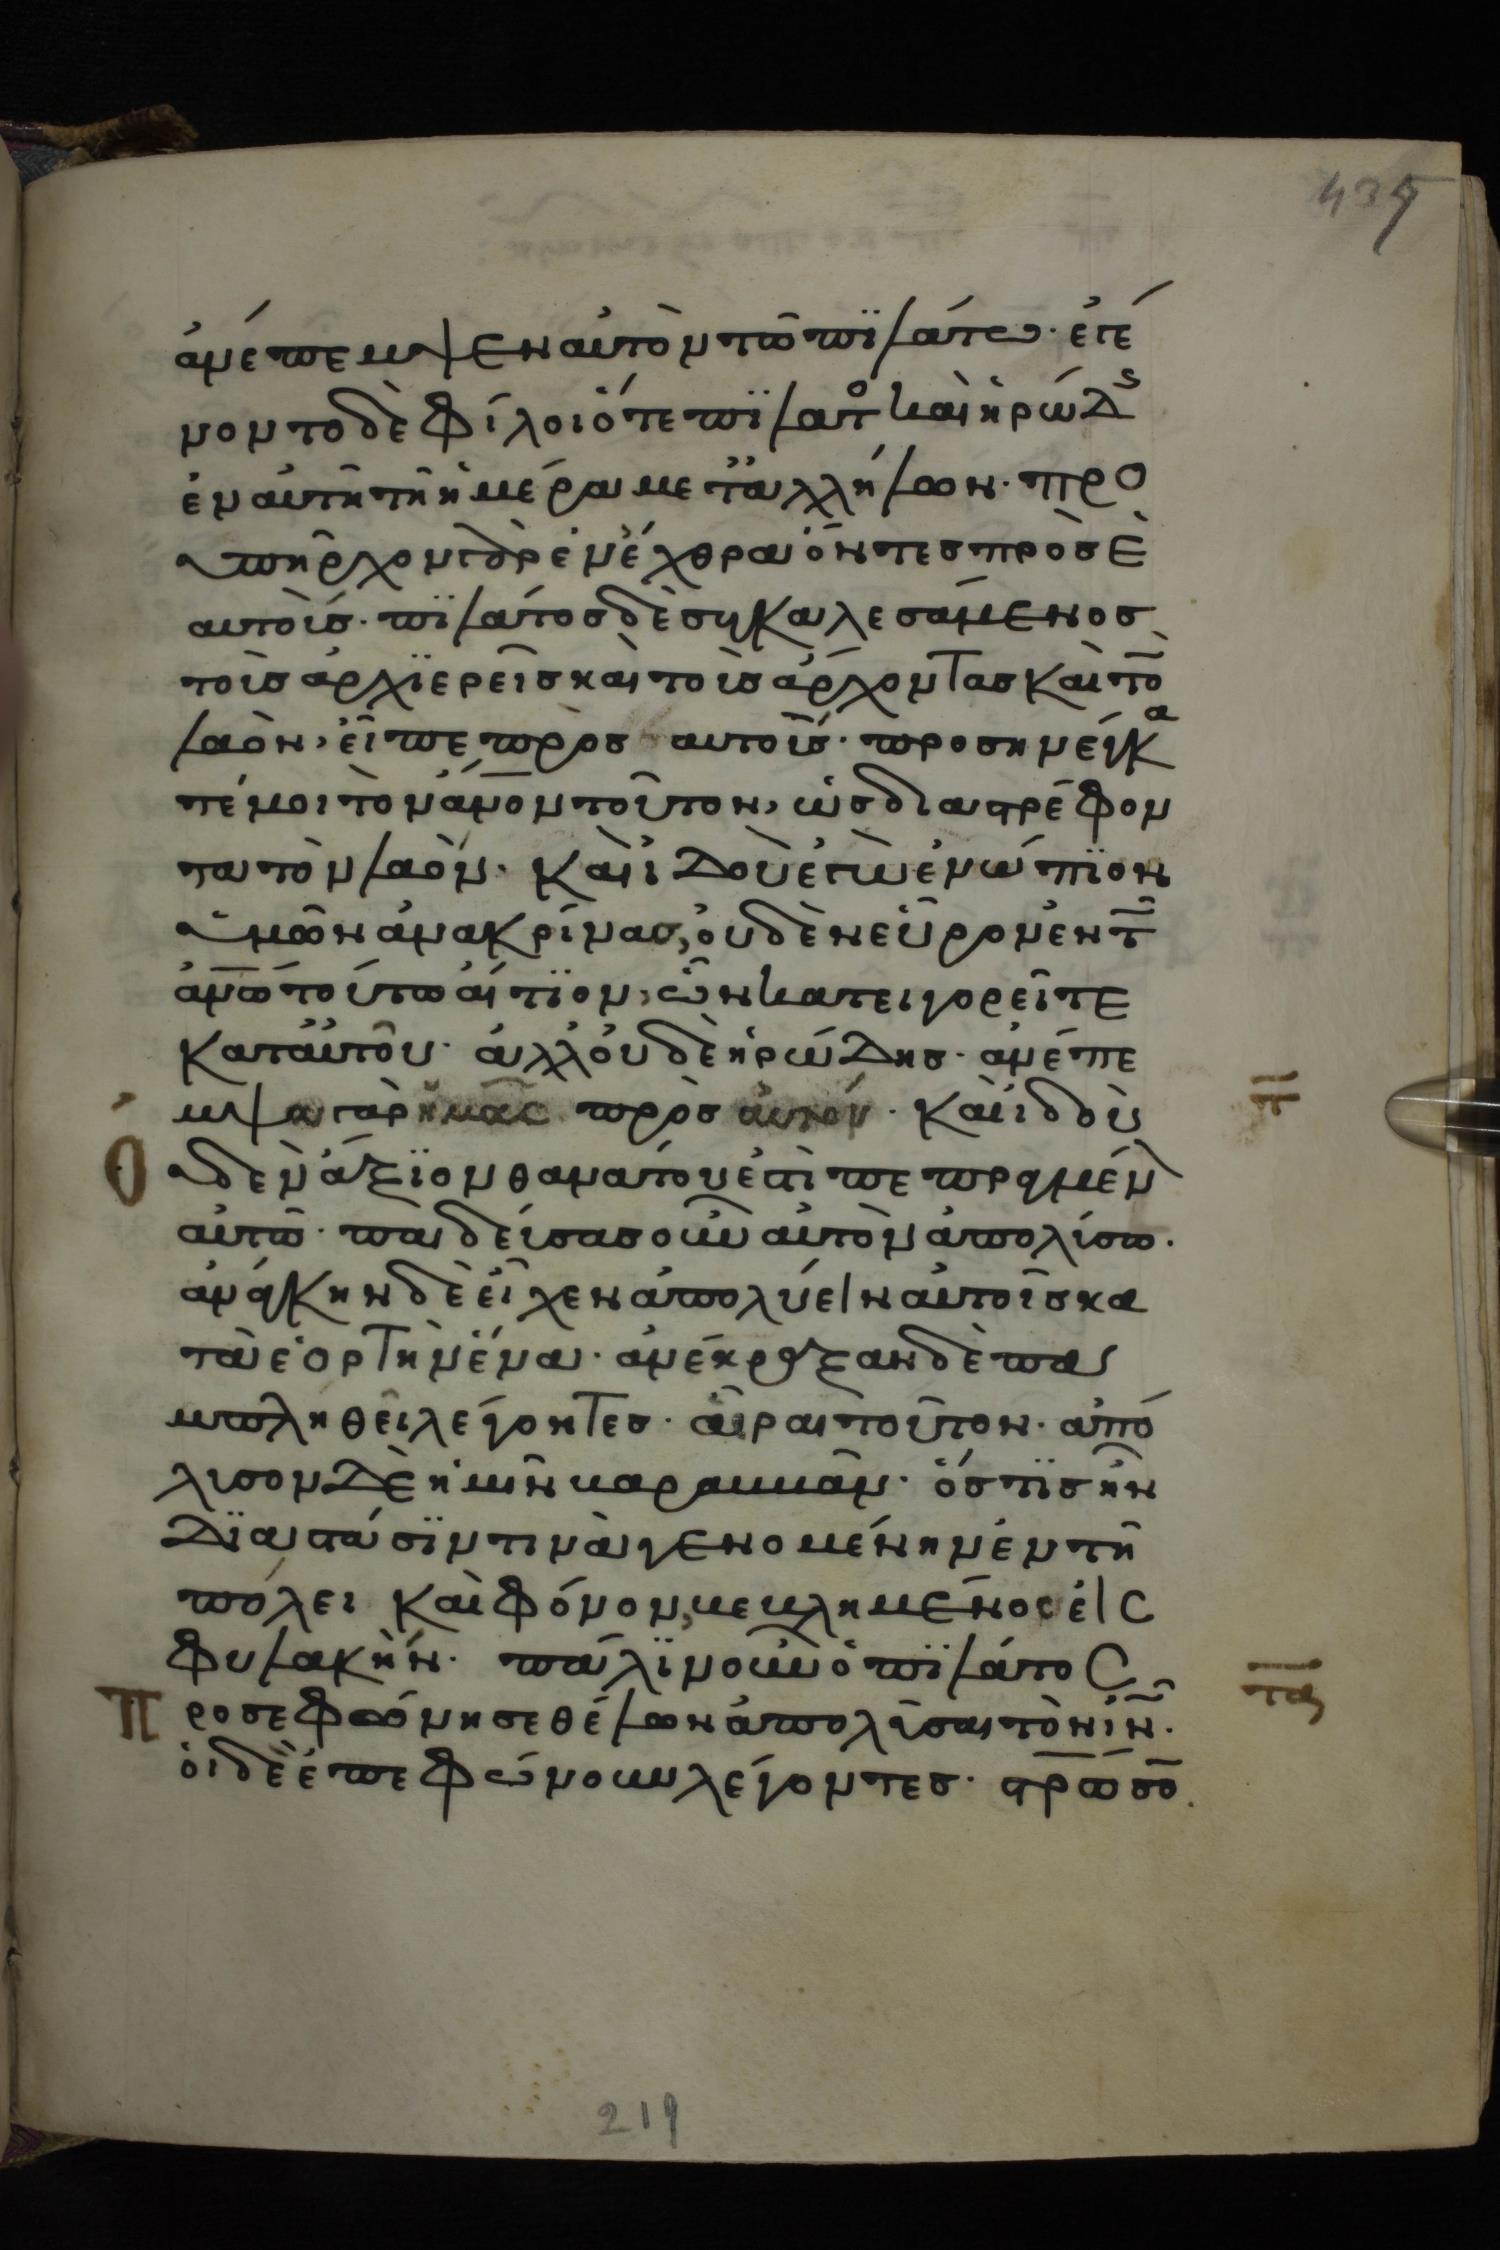 435
ἀνέπεμψεν αὐτὸν τῶ πϊλάτω· ἐγέ
νοντο δὲ φίλοι ὅτε πϊλατο καὶ ἡρώδς
ἐν αὐτῆ τῆ ἡμέρα μετ' ἀλλήλων· προ
ϋπῆρχον γὰρ ἐν ἔχθρα ὄντες πρὸς ἑ
αυτούς· πϊλάτος δὲ συγκαλεσάμενος
τοὺς ἀρχϊερεῖς καὶ τοὺς ἄρχοντας καὶ τὸ
λαὸν, εἶπε πρὸς αυτοῖς· προσηνέγκα
τέ μοι τὸν ἄνον τοῦτον, ὡς διαστρέφον
τα τὸν λαόν· καὶ ἰδοὺ ἐγὼ ἐνώπϊον
ὑμῶν ἀνακρίνας, οὐδὲν εὗρον ἐν τ
ἀνω τούτω αἴτϊον, ὧν κατειγορεῖτε
κατ' αὐτοῦ· ἀλλ' οὐδὲ ἡρώδης· ἀνέπε
μψα γὰρ ἡμᾶς πρὸς αὐτόν· καὶ ἰδοὺ
Ὀ υδεν ἄξϊον θανάτου ἐστὶ πεπραγμέν
αὐτῶ· παιδεύσας οὖν αὐτὸν ἀπολύσω·
ἀνάγκην δὲ εἶχεν ἀπολύειν αὐτοῖς κα
τὰ ἑορτὴν ἕνα· ἀνέκραξαν δὲ πα
μπληθεὶ λέγοντες· αἶραι τοῦτον· ἀπό
λυσον δὲ ἡμῖν βαραββᾶν· ὅστϊς ἦν
δϊα στάσϊν τινὰ γενομένην ἐν τῆ
πόλει καὶ φόνον, βεβλημένος εἰς
φυλακήν· πάλϊν οὖν ὁ πϊλάτος
Π ροσεφώνησε θέλων ἀπολῦσαι τὸν ιν·
οἱ δὲ ἐπεφώνουν λέγοντες· στρωσο.
219